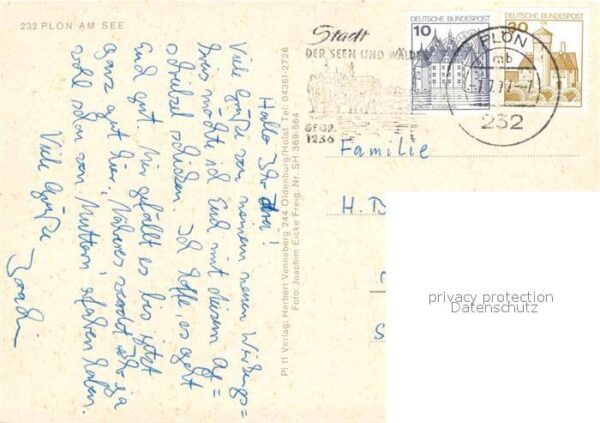 232 PLÖN AM SEE
Hallo Ihr drei!
Viele Grüße von meinem neuen Wirkungs=
kreis möchte ich Euch mit diesem Auf=
schicken. Ich hoffe, es geht
Euch gut. Mir gefällt es bis jetzt
ganz gut hier. Näheres werdet Ihr ja
wohl schon von Muttern erfahren haben.
Viele Grüße
PI 11 Verlag: Herbert Venneberg 244 Oldenburg/Holst. Tel. 04361-2726
Foto: Joachim Eicke Freig. Nr. SH 369-564
Stadt
DER SEEN UND WÄLDER
GEGR.
1236
10
DEUTSCHE BUNDESPOST
30
DEUTSCHE BUNDESPOST
PLÖN
mb
232
Familie
H.
privacy protection
Datenschutz